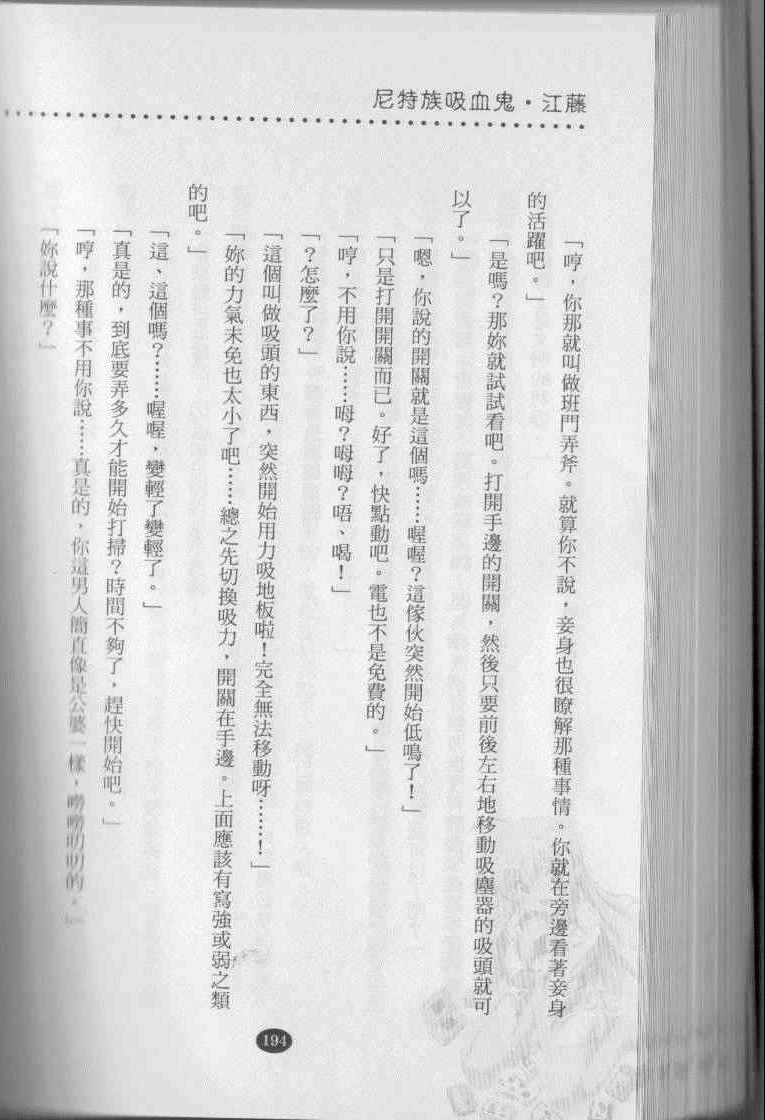 尼特族吸血鬼・江藤
「哼，你那就叫做班門弄斧。就算你不說，妾身也很瞭解那種事情。你就在旁邊看著妾身
的活躍吧。」
「是嗎？那妳就試試看吧。打開手邊的開關，然後只要前後左右地移動吸塵器的吸頭就可
以了。」
「嗯，你說的開關就是這個嗎……喔喔？這傢伙突然開始低鳴了！」
「只是打開開關而已。好了，快點動吧。電也不是免費的。」
「哼，不用你說……呣？呣呣？唔、喝！」
「？怎麼了？」
「這個叫做吸頭的東西，突然開始用力吸地板啦！完全無法移動呀……！」
「妳的力氣未免也太小了吧……總之先切換吸力，開關在手邊。上面應該有寫強或弱之類
的吧。」
「這、這個嗎？……喔喔，變輕了變輕了。」
「真是的，到底要弄多久才能開始打掃？時間不夠了，趕快開始吧。」
「哼，那種事不用你說……真是的，你這男人簡直像是公婆一樣，嘮嘮叨叨的。」
「妳說什麼？」
194